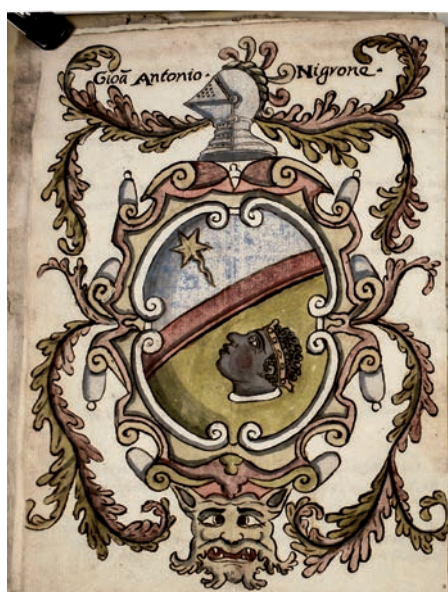 Gioã Antonio · Nigrone ·